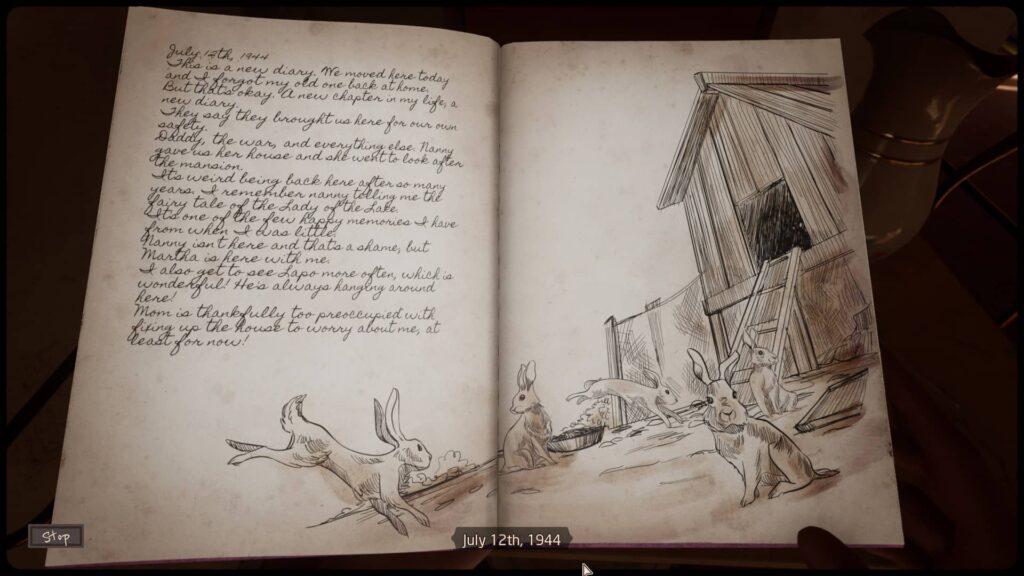 July 12th, 1944
This is a new diary. We moved here today
and I forgot my old one back at home.
But that's okay. A new chapter in my life, a
new diary.
They say they brought us here for our own
safety.
Daddy, the war, and everything else. Nanny
gave us her house and she went to look after
the mansion.
It's weird being back here after so many
years. I remember nanny telling me the
fairy tale of the Lady of the Lake.
It's one of the few happy memories I have
from when I was little.
Nanny isn't here and that's a shame, but
Martha is here with me.
I also get to see Lapo more often, which is
wonderful! He's always hanging around
here!
Mom is thankfully too preoccupied with
fixing up the house to worry about me, at
least for now!
Stop
July 12th, 1944